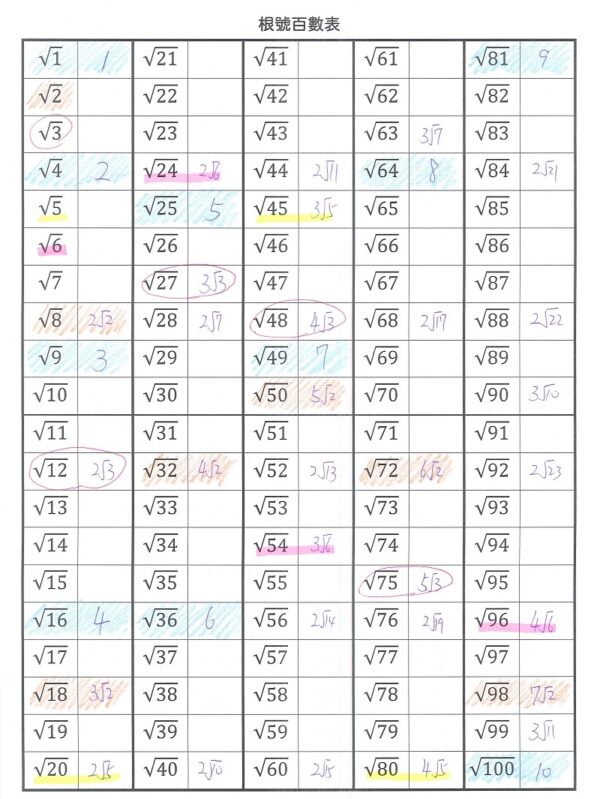 根號百數表
√1 1 √21 √41 √61 √81 9
√2 √22 √42 √62 √82
√3 √23 √43 √63 3√7 √83
√4 2 √24 2√6 √44 2√11 √64 8 √84 2√21
√5 √25 5 √45 3√5 √65 √85
√6 √26 √46 √66 √86
√7 √27 3√3 √47 √67 √87
√8 2√2 √28 2√7 √48 4√3 √68 2√17 √88 2√22
√9 3 √29 √49 7 √69 √89
√10 √30 √50 5√2 √70 √90 3√10
√11 √31 √51 √71 √91
√12 2√3 √32 4√2 √52 2√13 √72 6√2 √92 2√23
√13 √33 √53 √73 √93
√14 √34 √54 3√6 √74 √94
√15 √35 √55 √75 5√3 √95
√16 4 √36 6 √56 2√14 √76 2√19 √96 4√6
√17 √37 √57 √77 √97
√18 3√2 √38 √58 √78 √98 7√2
√19 √39 √59 √79 √99 3√11
√20 2√5 √40 2√10 √60 2√15 √80 4√5 √100 10